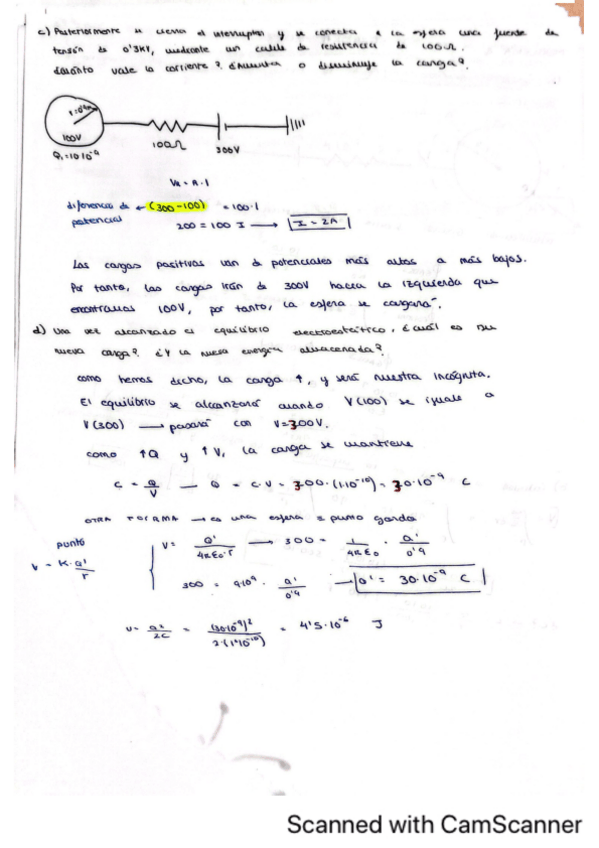 c) Posteriormente se cierra el interruptor y se conecta a la esfera una fuente de
tensión de 0'3KV, mediante un cable de resistencia de 100Ω.
¿Cuánto vale la corriente? ¿Aumenta o disminuye la carga?
100V
Q₁=10·10⁻⁹
100Ω
300V
V_R = R·I
diferencia de potencial ← (300-100) = 100·I
200 = 100 I → I = 2A
Las cargas positivas van de potenciales más altos a más bajos.
Por tanto, las cargas irán de 300V hacia la izquierda que
encontramos 100V, por tanto, la esfera se cargará.
d) Una vez alcanzado el equilibrio electroestático, ¿cuál es su
nueva carga? ¿Y la nueva energía almacenada?
como hemos dicho, la carga ↑, y será nuestra incógnita.
El equilibrio se alcanzará cuando V(100) se iguale a
V(300) → pasará con V=300V.
como ↑Q y ↑V, la carga se mantiene
C = Q/V — Q = C·V = 300·(1·10⁻¹⁰) = 30·10⁻⁹ C
OTRA FORMA → es una esfera = punto gordo
punto
V = K·Q'/r
V = Q'/4πε₀·r → 300 = 1/4πε₀ · Q'/0'9
300 = 9·10⁹ · Q'/0'9 → Q' = 30·10⁻⁹ C
U = Q²/2C = (30·10⁻⁹)²/2·(1·10⁻¹⁰) = 4'5·10⁻⁶ J
Scanned with CamScanner